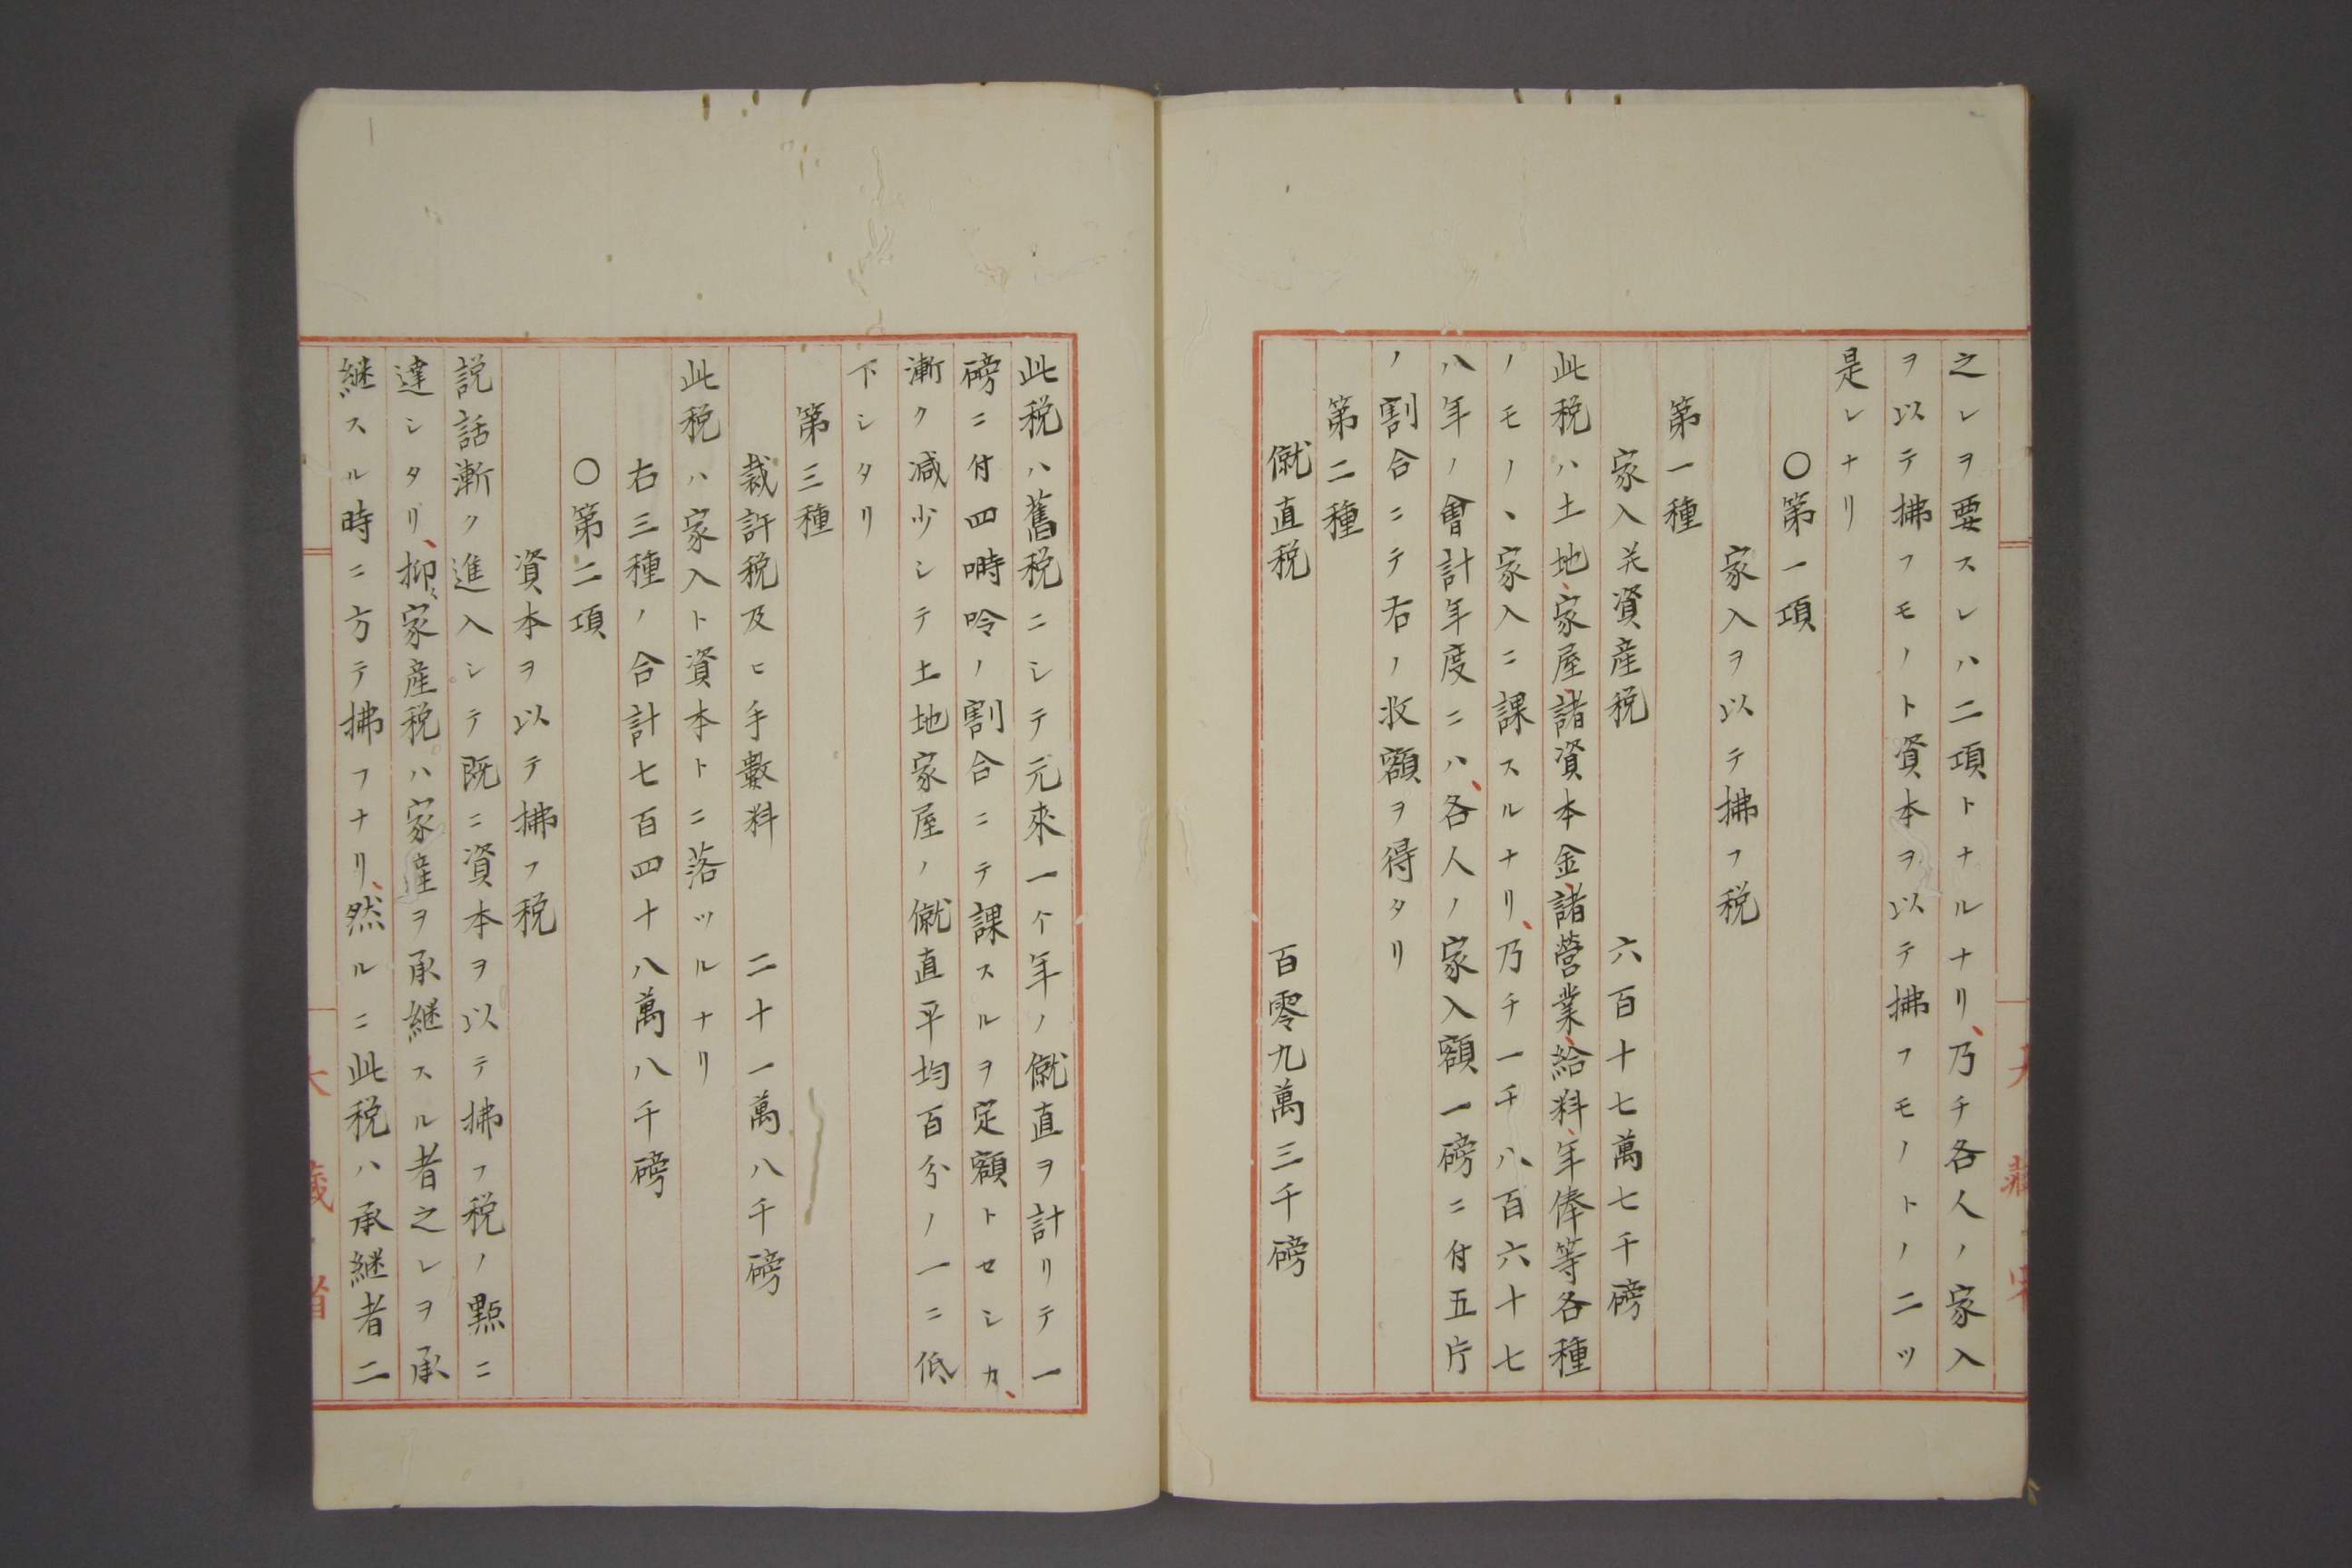 之レヲ要スレハ二項トナルナリ、乃チ各人ノ家入
ヲ以テ拂フモノト資本ヲ以テ拂フモノトノ二ツ
是レナリ
〇第一項
家入ヲ以テ拂フ税
第一種
家入並資産税 六百十七萬七千磅
此税ハ土地、家屋、諸資本金、諸營業、給料、年俸等各種
ノモノヽ家入ニ課スルナリ、乃チ一千八百六十七
八年ノ會計年度ニハ、各人ノ家入額一磅ニ付五片
ノ割合ニテ右ノ收額ヲ得タリ
第二種
僦直税 百零九萬三千磅
此税ハ舊税ニシテ元來一个年ノ僦直ヲ計リテ一
磅ニ付四時呤ノ割合ニテ課スルヲ定額トセシカ、
漸ク減少シテ土地家屋ノ僦直平均百分ノ一ニ低
下シタリ
第三種
裁許税及ヒ手數料 二十一萬八千磅
此税ハ家入ト資本トニ落ツルナリ
右三種ノ合計七百四十八萬八千磅
〇第二項
資本ヲ以テ拂フ税
説話漸ク進入シテ既ニ資本ヲ以テ拂フ税ノ點ニ
達シタリ、抑〻家産税ハ家産ヲ承継スル者之レヲ承
継スル時ニ方テ拂フナリ、然ルニ此税ハ承継者二
大藏省